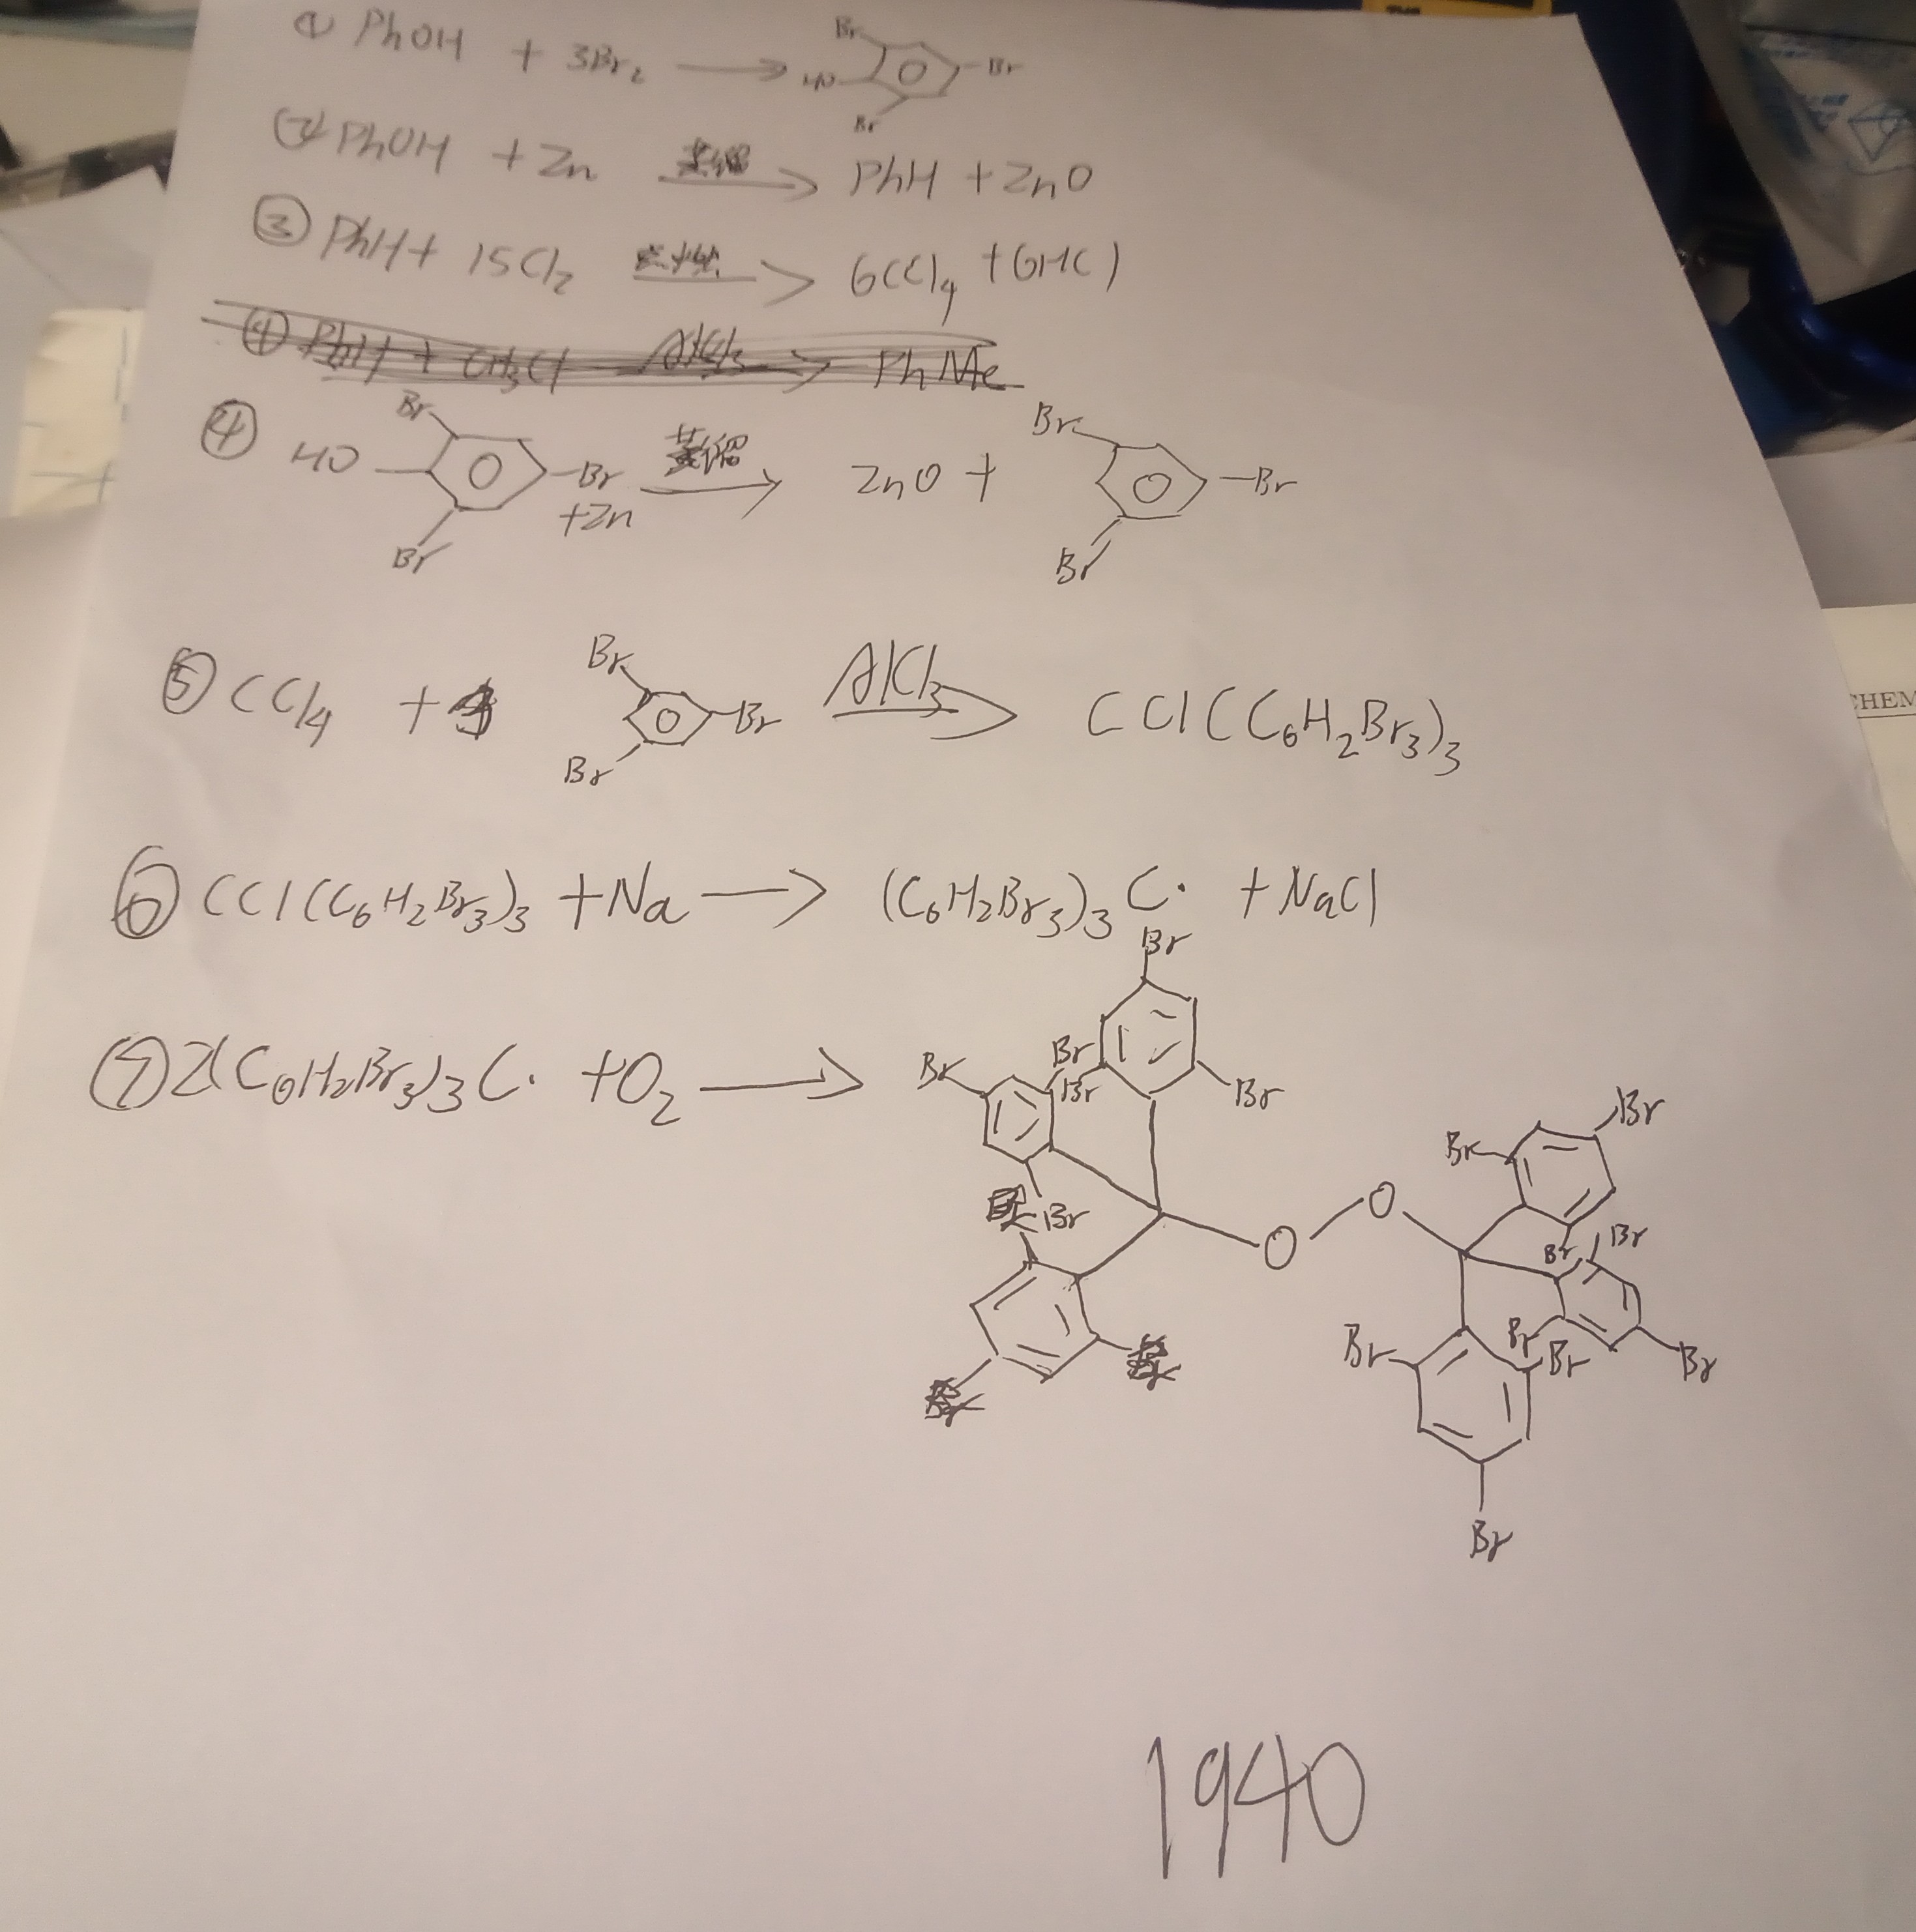 ① PhOH + 3Br₂ ⟶ Br HO Br Br
② PhOH + Zn 蒸馏⟶ PhH + ZnO
③ PhH + 15Cl₂ ⟶ 6CCl₄ + 6HCl
④ PhH + CH₃Cl AlCl₃⟶ PhMe
④ HO Br Br Br + Zn 蒸馏⟶ ZnO + Br Br Br
⑤ CCl₄ + Br Br Br AlCl₃⟶ CCl(C₆H₂Br₃)₃
⑥ CCl(C₆H₂Br₃)₃ + Na ⟶ (C₆H₂Br₃)₃C· + NaCl
⑦ 2(C₆H₂Br₃)₃C· + O₂ ⟶ Br Br Br Br Br Br O O Br Br Br Br Br Br Br Br Br
1940
CHEM